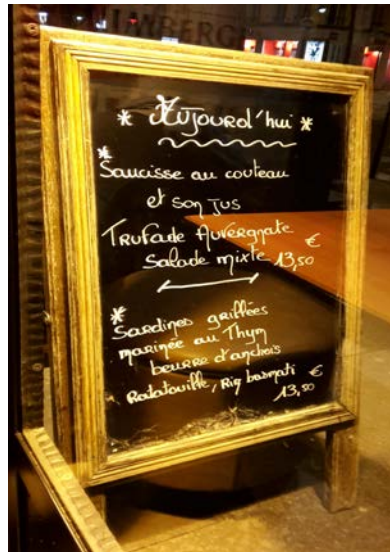 * Aujourd'hui *
*
Saucisse au couteau
et son jus
Trufade Auvergnate
Salade mixte 13,50 €
*
Sardines grillées
marinée au Thym
beurre d'anchois
Ratatouille, Riz basmati €
13,50